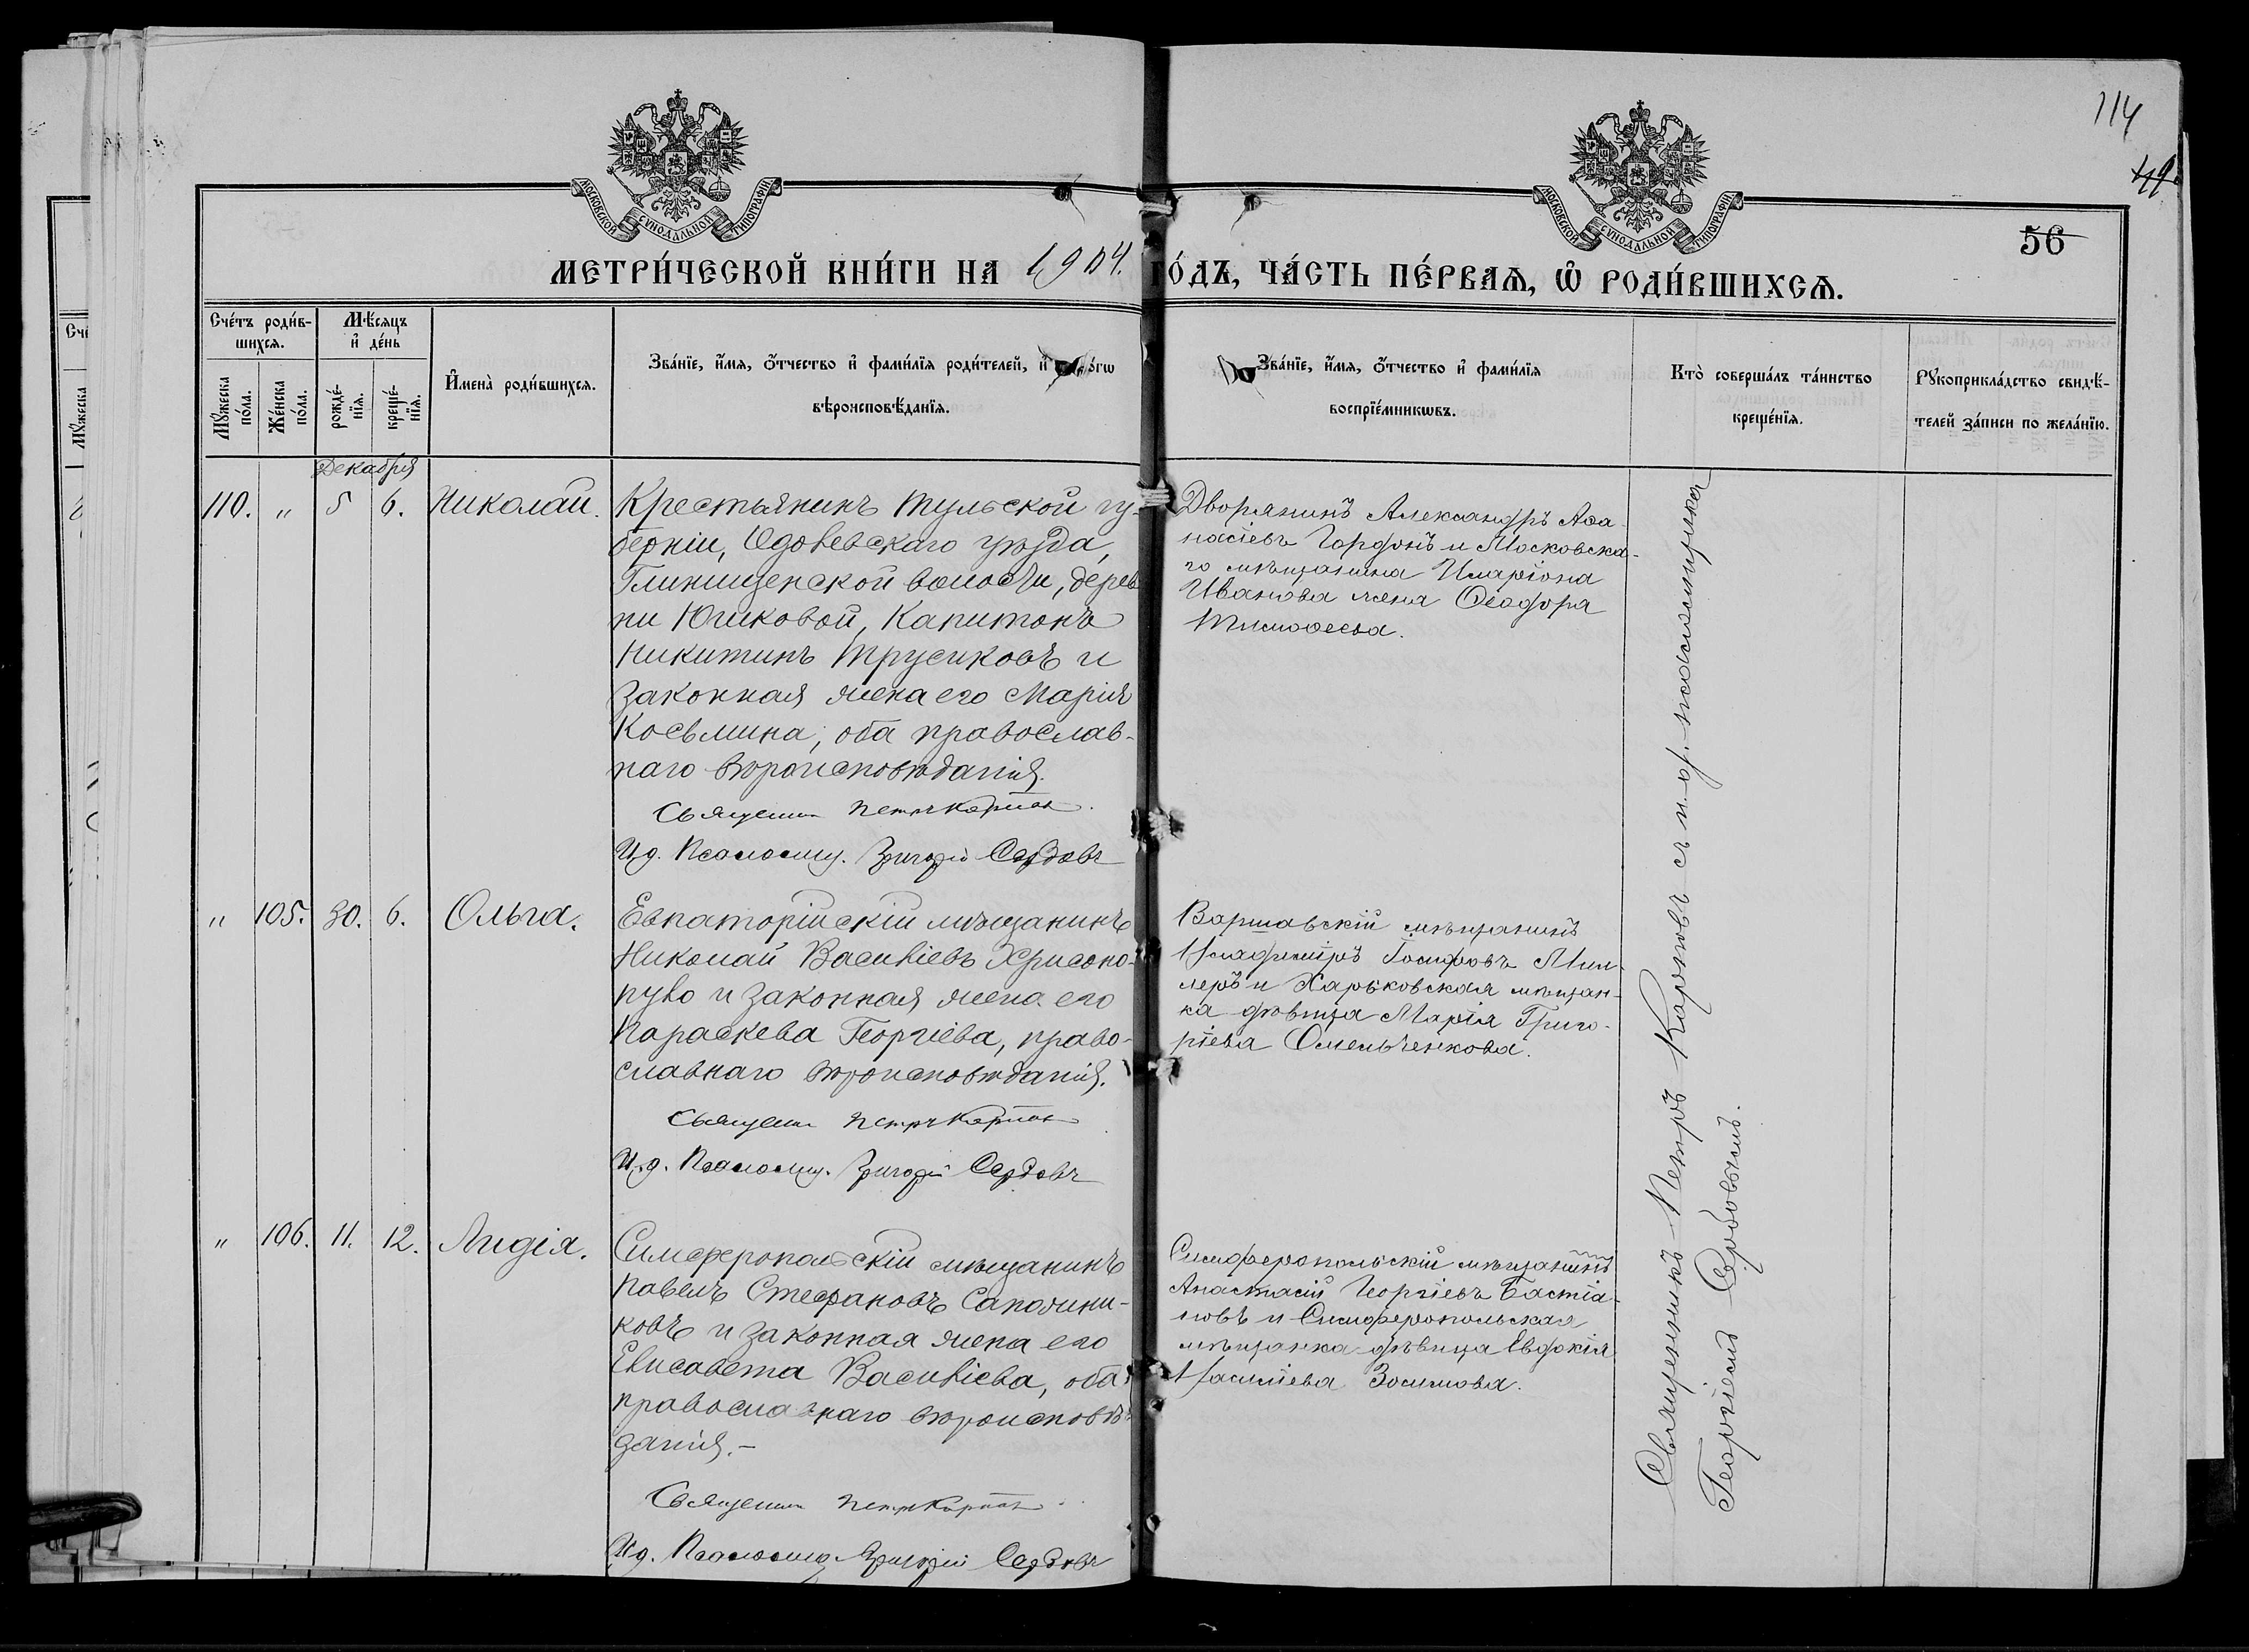 114
49
56
МОСКОВСКОЙ СѴНОДАЛЬНОЙ ТИПОГРАФІИ
МОСКОВСКОЙ СѴНОДАЛЬНОЙ ТИПОГРАФІИ
МЕТРИ́ЧЕСКОЙ КНИ́ГИ НА 1904. ГО́ДЪ, ЧА́СТЬ ПЕ́РВАѦ, Ѡ҆ РОДИ́ВШИХСѦ.
Сче́тъ роди́в-
шихсѧ.
Мꙋ́жеска
по́ла.
Же́нска
по́ла.
Мѣ́сѧцъ
и҆ де́нь
рожде́-
нїѧ.
креще́-
нїѧ.
И҆мена̀ роди́вшихсѧ.
Зва́нїе, и҆́мѧ, ѻ҆́тчество и҆ фами́лїѧ роди́телей, и҆
вѣроисповѣ́данїѧ.
Зва́нїе, и҆́мѧ, ѻ҆́тчество и҆ фами́лїѧ
воспрїе́мникѡвъ.
Кто̀ соверша́лъ та́инство
креще́нїѧ.
Рꙋкоприкла́дство свидѣ́-
телей за́писи по жела́нїю.
Декабря
110. " 5 6. Николай.
Крестьянинъ Тульской гу-
берніи, Одоевскаго уѣзда,
Глинищенской волости, дерев
ни Юшковой, Капитонъ
Никитинъ Трусиковъ и
законная жена его Марія
Косьмина, оба православ-
наго вѣроисповѣданія.
Священникъ Петръ Карповъ
И. д. Псаломщ. Григорій Сербовъ
Дворянинъ Александръ Аѳа-
насіевъ Гордонъ и Московска-
го мѣщанина Иларіона
Иванова жена Ѳеодора
Тимоѳеева.
" 105. 30. 6. Ольга.
Евпаторійскій мѣщанинъ
Николай Василіевъ Хрисопо-
пуло и законная жена его
Параскева Георгіева, право-
славнаго вѣроисповѣданія.
Священникъ Петръ Карповъ
И. д. Псаломщ. Григорій Сербовъ
Варшавскій мѣщанинъ
Владиміръ Іосифовъ Мил-
леръ и Харьковская мѣщан-
ка дѣвица Марія Григо-
ріева Омельченкова.
" 106. 11. 12. Лидія.
Симферопольскій мѣщанинъ
Павелъ Стефановъ Сапожни-
ковъ и законная жена его
Елисавета Василіева, оба
православнаго вѣроисповѣ-
данія.-
Священникъ Петръ Карповъ
И. д. Псаломщ. Григорій Сербовъ
Симферопольскій мѣщанинъ
Анастасій Георгіевъ Бастіа-
новъ и Симферопольская
мѣщанка дѣвица Евдокія
Василіева Зосимова.
Священникъ Петръ Карповъ съ и. д. псаломщика
Георгіемъ Сербовымъ.